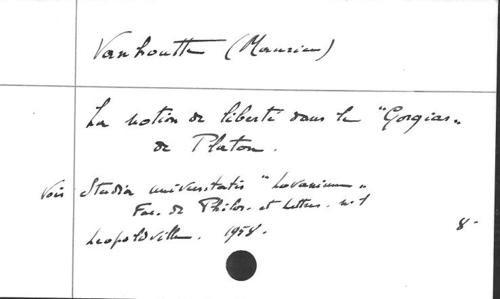 Vanhoutte (Maurice)
La notion de liberté dans le "Gorgias"
de Platon.
Voir Studia universitatis "Lovanium"
Fac. de Philos. et Lettres. n° 1
Leopoldville. 1958. 8-